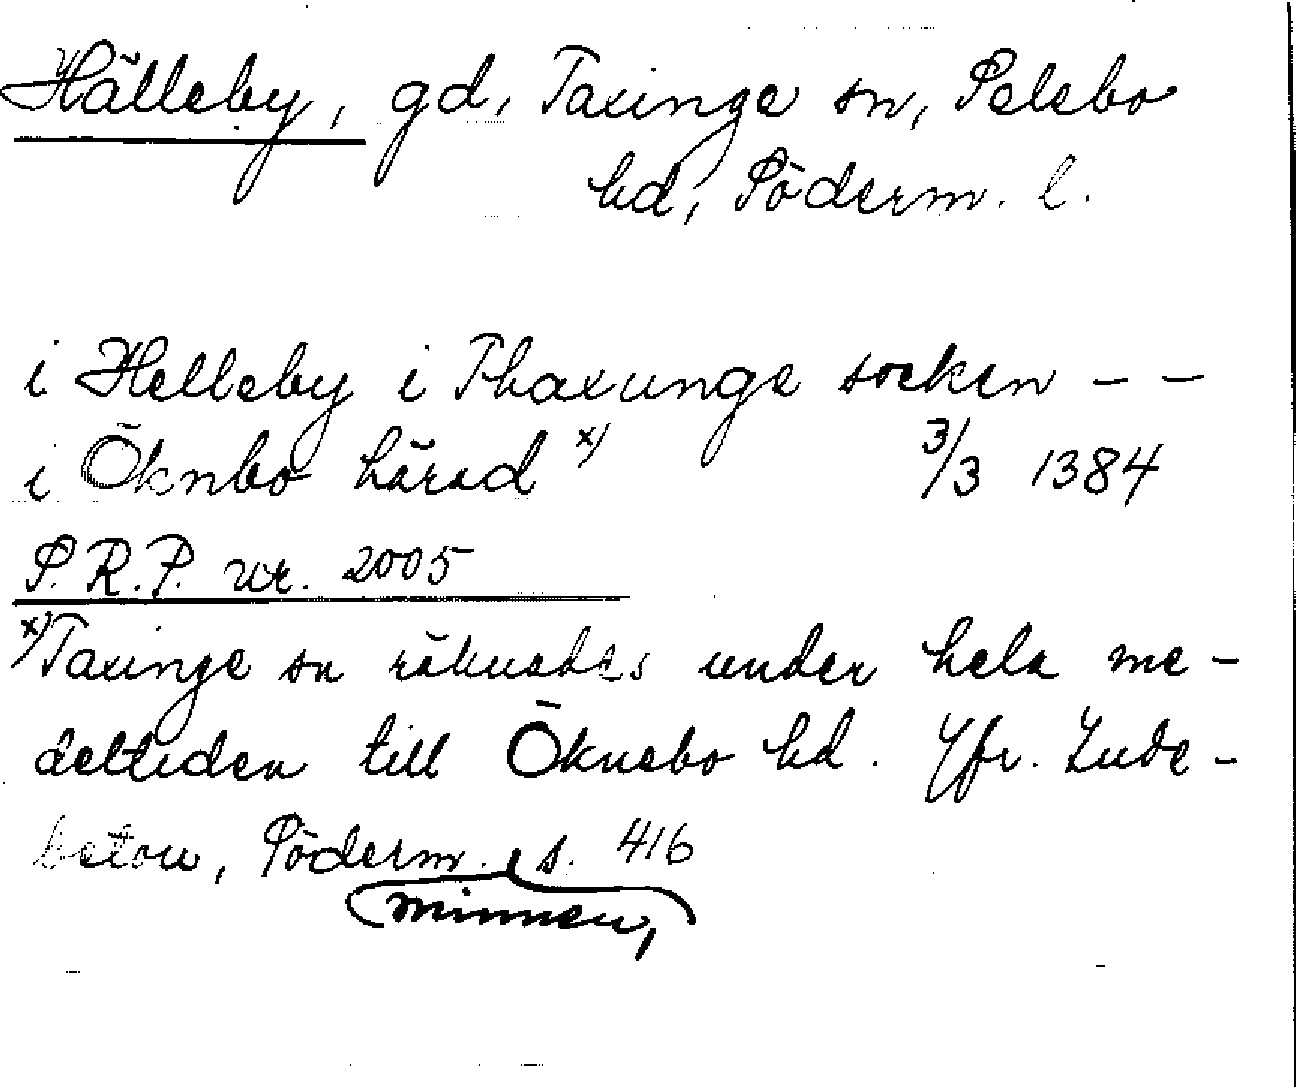 Hälleby, gd, Taxinge sn, Selebo
hd, Söderm. l.
i Helleby i Thaxunge socken – –
i Öknbo härad x) 3/3 1384
S.R.P. nr. 2005
x) Taxinge sn räknades under hela me-
deltiden till Öknebo hd. Jfr. Lude-
beton, Söderm. s. 416
minnen,